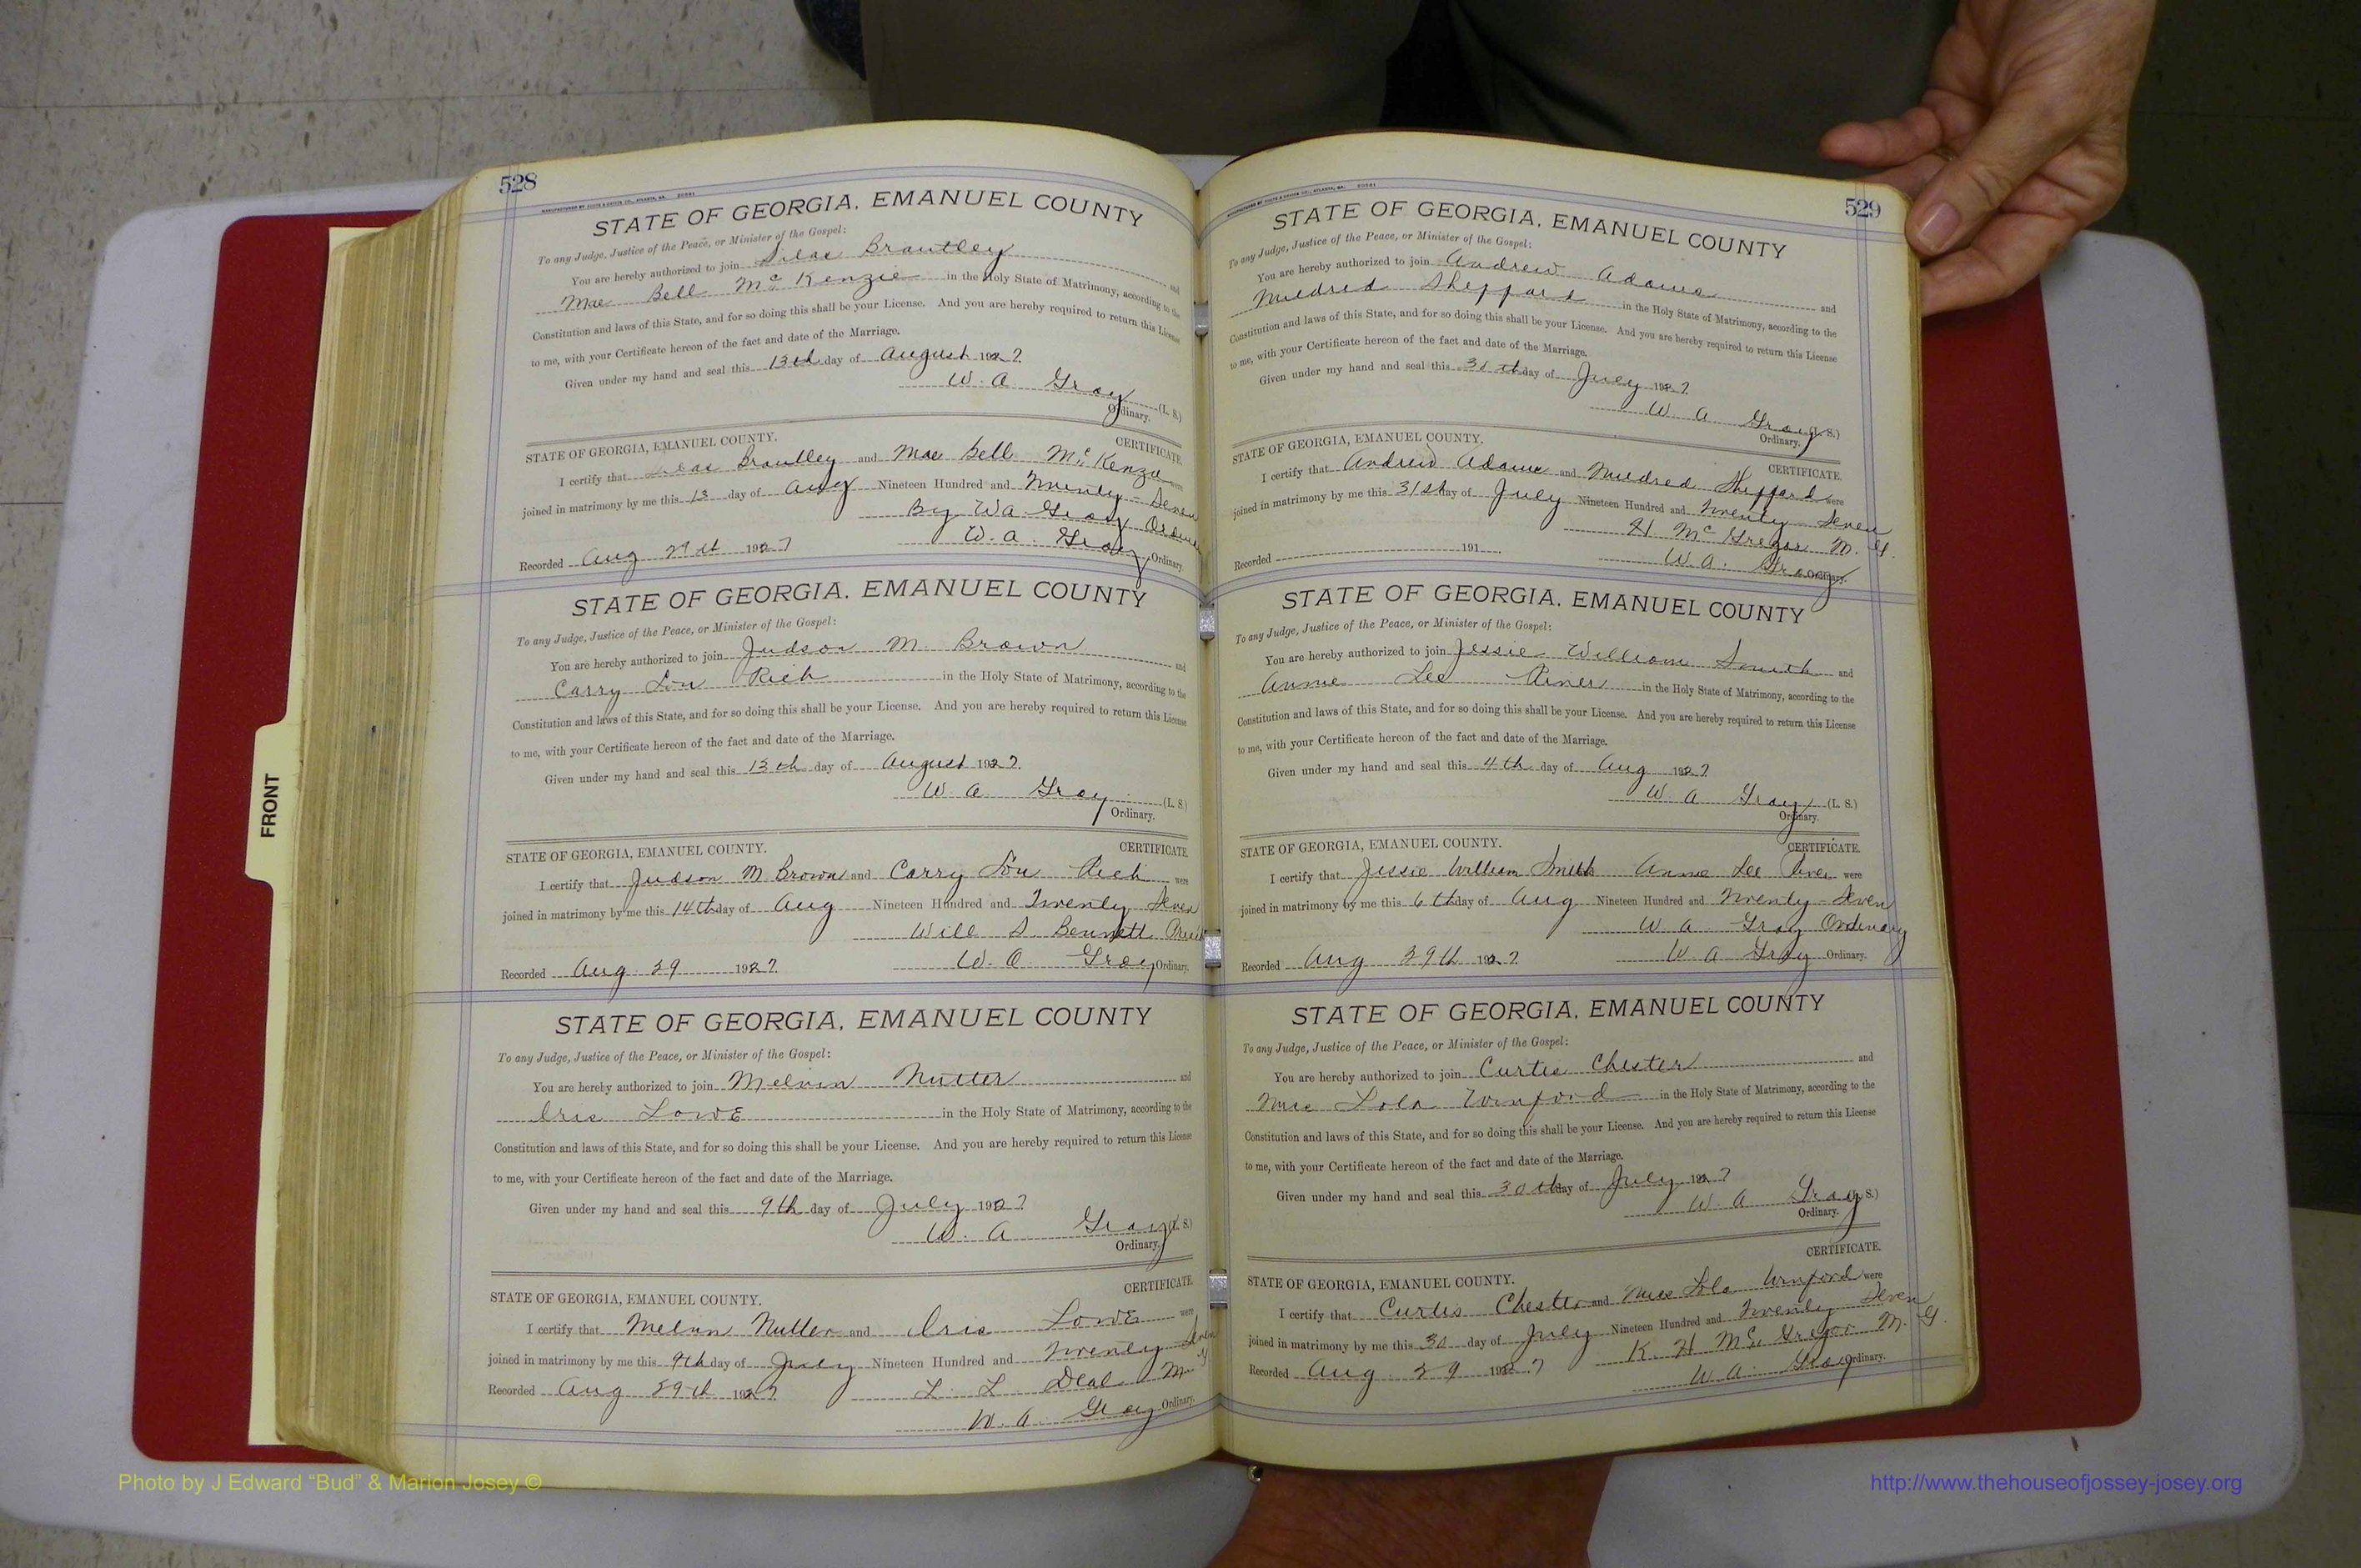 528
STATE OF GEORGIA, EMANUEL COUNTY
To any Judge, Justice of the Peace, or Minister of the Gospel:
You are hereby authorized to join Silas Brantley and
Mae Bell McKenzie in the Holy State of Matrimony, according to the
Constitution and laws of this State, and for so doing this shall be your License. And you are hereby required to return this License
to me, with your Certificate hereon of the fact and date of the Marriage.
Given under my hand and seal this 13th day of August 1927
W. A. Gray (L. S.)
Ordinary.
STATE OF GEORGIA, EMANUEL COUNTY. CERTIFICATE.
I certify that Silas Brantley and Mae Bell McKenzie were
joined in matrimony by me this 13 day of Aug Nineteen Hundred and Twenty-Seven
By W A Gray
Recorded Aug 29th 1927 W. A. Gray Ordinary.
STATE OF GEORGIA, EMANUEL COUNTY
To any Judge, Justice of the Peace, or Minister of the Gospel:
You are hereby authorized to join Judson M. Brown and
Carry Lou Rich in the Holy State of Matrimony, according to the
Constitution and laws of this State, and for so doing this shall be your License. And you are hereby required to return this License
to me, with your Certificate hereon of the fact and date of the Marriage.
Given under my hand and seal this 13th day of August 1927.
W. A. Gray (L. S.)
Ordinary.
STATE OF GEORGIA, EMANUEL COUNTY. CERTIFICATE.
I certify that Judson M Brown and Carry Lou Rich were
joined in matrimony by me this 14th day of Aug Nineteen Hundred and Twenty Seven
Will S. Bennett
Recorded Aug 29 1927. W. A. Gray Ordinary.
STATE OF GEORGIA, EMANUEL COUNTY
To any Judge, Justice of the Peace, or Minister of the Gospel:
You are hereby authorized to join Melvin Nutter and
Iris Lowe in the Holy State of Matrimony, according to the
Constitution and laws of this State, and for so doing this shall be your License. And you are hereby required to return this License
to me, with your Certificate hereon of the fact and date of the Marriage.
Given under my hand and seal this 9th day of July 1927
W. A Gray (L. S.)
Ordinary.
CERTIFICATE.
STATE OF GEORGIA, EMANUEL COUNTY.
I certify that Melvin Nutter and Iris Lowe were
joined in matrimony by me this 9th day of July Nineteen Hundred and Twenty Seven
Recorded Aug 29th 1927 L. L. Deal M. G
W. A. Gray Ordinary.
529
STATE OF GEORGIA, EMANUEL COUNTY
To any Judge, Justice of the Peace, or Minister of the Gospel:
You are hereby authorized to join Andrew Adams and
Mildred Sheppard in the Holy State of Matrimony, according to the
Constitution and laws of this State, and for so doing this shall be your License. And you are hereby required to return this License
to me, with your Certificate hereon of the fact and date of the Marriage.
Given under my hand and seal this 30th day of July 1927
W A Gray (L. S.)
Ordinary.
STATE OF GEORGIA, EMANUEL COUNTY. CERTIFICATE.
I certify that Andrew Adams and Mildred Sheppard were
joined in matrimony by me this 31st day of July Nineteen Hundred and Twenty Seven
H McGregor M. G.
Recorded 191 W. A. Gray Ordinary.
STATE OF GEORGIA, EMANUEL COUNTY
To any Judge, Justice of the Peace, or Minister of the Gospel:
You are hereby authorized to join Jessie William Smith and
Annie Lee Riner in the Holy State of Matrimony, according to the
Constitution and laws of this State, and for so doing this shall be your License. And you are hereby required to return this License
to me, with your Certificate hereon of the fact and date of the Marriage.
Given under my hand and seal this 4th day of Aug 1927
W. A Gray (L. S.)
Ordinary.
STATE OF GEORGIA, EMANUEL COUNTY. CERTIFICATE.
I certify that Jessie William Smith Annie Lee Riner were
joined in matrimony by me this 6th day of Aug Nineteen Hundred and Twenty-Seven
W A Gray Ordinary
Recorded Aug 29th 1927. W A Gray Ordinary.
STATE OF GEORGIA, EMANUEL COUNTY
To any Judge, Justice of the Peace, or Minister of the Gospel:
You are hereby authorized to join Curtis Chester and
Miss Lola Winford in the Holy State of Matrimony, according to the
Constitution and laws of this State, and for so doing this shall be your License. And you are hereby required to return this License
to me, with your Certificate hereon of the fact and date of the Marriage.
Given under my hand and seal this 30th day of July 1927
W. A Gray (L. S.)
Ordinary.
CERTIFICATE.
STATE OF GEORGIA, EMANUEL COUNTY.
I certify that Curtis Chester and Miss Lola Winford were
joined in matrimony by me this 30 day of July Nineteen Hundred and Twenty Seven
Recorded Aug. 29 1927 K. H McGregor M. G.
W A. Gray Ordinary.
FRONT
Photo by J Edward “Bud” & Marion Josey ©
http://www.thehouseofjossey-josey.org